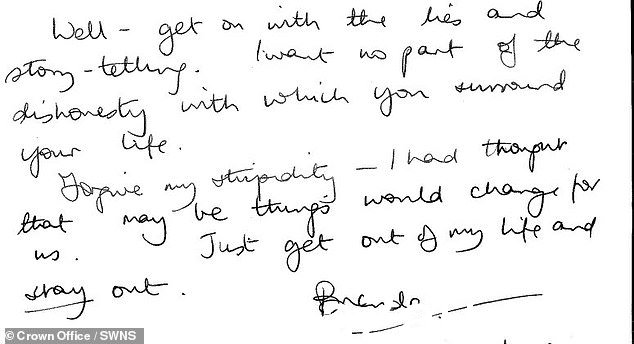 Well - get on with the lies and
story-telling. I want no part of the
dishonesty with which you surround
your life.
Forgive my stupidity - I had thought
that may be things would change for
us. Just get out of my life and
stay out.
© Crown Office / SWNS